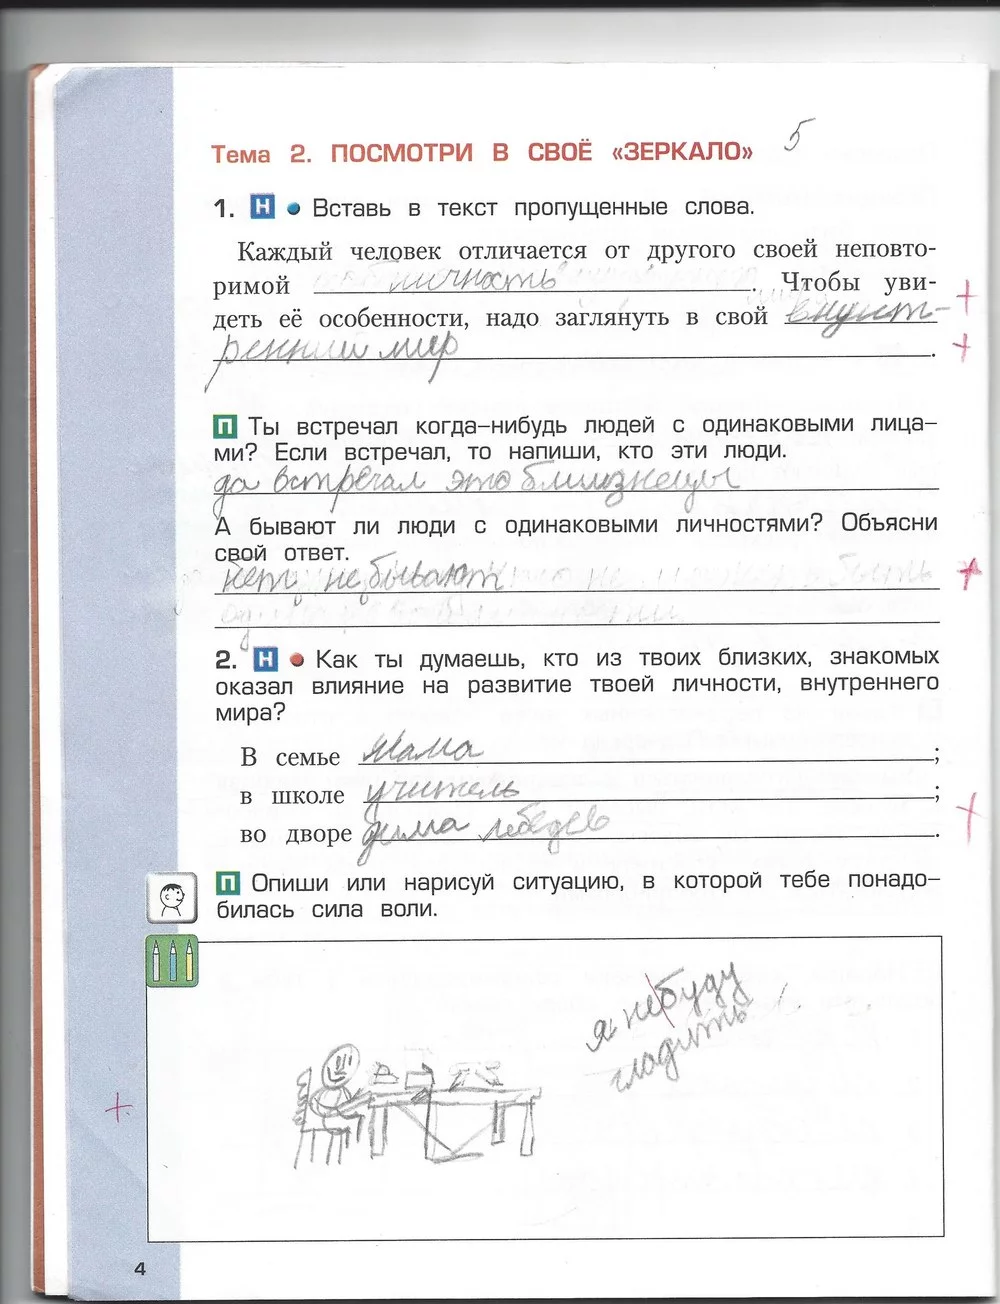 Тема 2. ПОСМОТРИ В СВОЁ «ЗЕРКАЛО» 5
1. Н • Вставь в текст пропущенные слова.
Каждый человек отличается от другого своей неповто-
римой личность. Чтобы уви-
деть её особенности, надо заглянуть в свой внут-
ренний мир.
П Ты встречал когда-нибудь людей с одинаковыми лица-
ми? Если встречал, то напиши, кто эти люди.
да встречал это близнецы
А бывают ли люди с одинаковыми личностями? Объясни
свой ответ.
нет не бывают быть
2. Н • Как ты думаешь, кто из твоих близких, знакомых
оказал влияние на развитие твоей личности, внутреннего
мира?
В семье мама;
в школе учитель;
во дворе дима лебедев.
П Опиши или нарисуй ситуацию, в которой тебе понадо-
билась сила воли.
я небуду
гладить
4